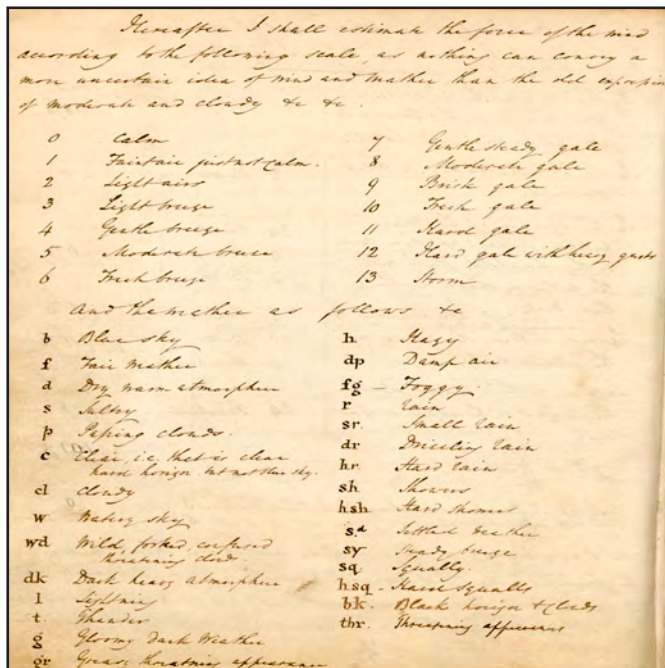 Hereafter I shall estimate the force of the wind
according to the following scale, as nothing can convey a
more uncertain idea of wind and weather than the old expression
of moderate and cloudy &c &c.
0 Calm
1 Faint air just not calm.
2 Light airs
3 Light breeze
4 Gentle breeze
5 Moderate breeze
6 Fresh breeze
7 Gentle steady gale
8 Moderate gale
9 Brisk gale
10 Fresh gale
11 Hard gale
12 Hard gale with heavy gusts
13 Storm
and the weather as follows &c
b Blue sky
f Fair weather
d Dry warm atmosphere
s Sultry
p Passing clouds.
c Clear, i.e. that is clear
hard horizon but not blue sky.
cl Cloudy
w Watery sky
wd Wild, forked, confused
threatning clouds.
dk Dark heavy atmosphere
l Lightning
t. Thunder
g Gloomy dark weather
gr Greasy threatning appearance
h Hazy
dp Damp air
fg Foggy.
r rain
sr. Small rain
dr Drizzling rain
hr. Hard rain
sh Showers
hsh Hard showers
s.d Settled weather
sy Steady breeze
sq Squally.
hsq Hard squalls
bk. Black horizon & clouds
thr. Threatning appearance